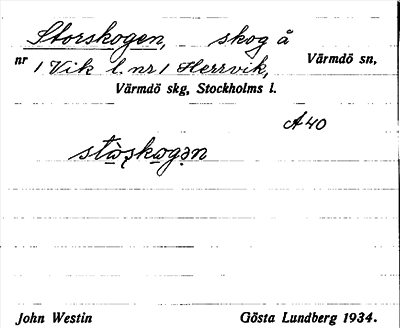 Storskogen, skog å
nr 1 Vik l. nr 1 Herrvik, Värmdö sn,
Värmdö skg, Stockholms l.
A 40
stò̱ʂko̱gən
John Westin Gösta Lundberg 1934.